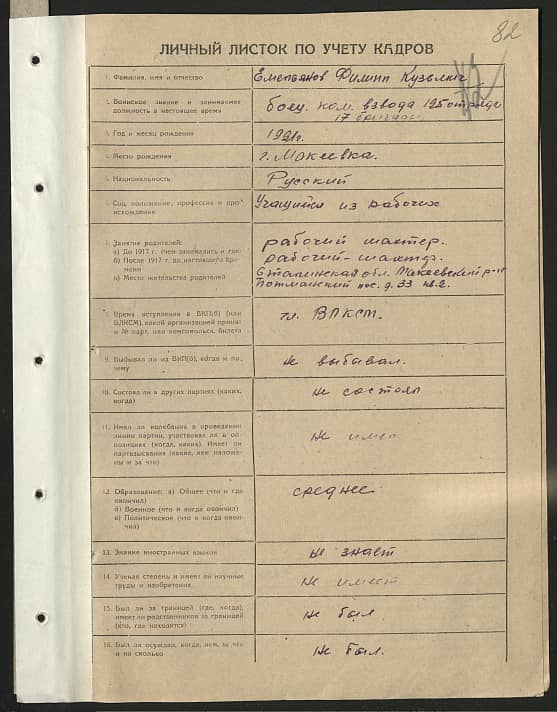 82
ЛИЧНЫЙ ЛИСТОК ПО УЧЕТУ КАДРОВ
1. Фамилия, имя и отчество
Емельянов Филипп Кузьмич
2. Воинское звание и занимаемая
должность в настоящее время
боец. ком. взвода 125 отряда
17 бригады
3. Год и месяц рождения
1921г.
4. Место рождения
г. Макеевка.
5. Национальность
Русский
6. Соц. положение, профессия и про-
исхождение
Учащийся из рабочих
7. Занятие родителей:
а) До 1917 г. (чем занимались и где)
б) После 1917 г. до настоящего вре-
мени
в) Место жительства родителей
рабочий шахтер.
рабочий-шахтер.
Сталинская обл. Макеевский р-н
пос. д. 33 кв. 2.
Время вступления в ВКП(б) (или
ВЛКСМ), какой организацией принят
и № парт. или комсомольск. билета
чл. ВЛКСМ.
9. Выбывал ли из ВКП(б), когда и по-
чему
не выбывал.
10. Состоял ли в других партиях (каких,
когда)
не состоял
11. Имел ли колебания в проведении
линии партии, участвовал ли в оп-
позициях (когда, каких). Имеет ли
партвзыскания (какие, кем наложе-
ны и за что)
не имел
12. Образование: а) Общее (что и где
окончил)
б) Военное (что и когда окончил)
в) Политическое (что и когда окон-
чил)
среднее
13. Знание иностранных языков
не знает
14. Ученая степень и имеет ли научные
труды и изобретения
не имеет
15. Был ли за границей (где, когда),
имеет ли родственников за границей
(кто, где находится)
не был
16. Был ли осужден, когда, кем, за что
и на сколько
не был.